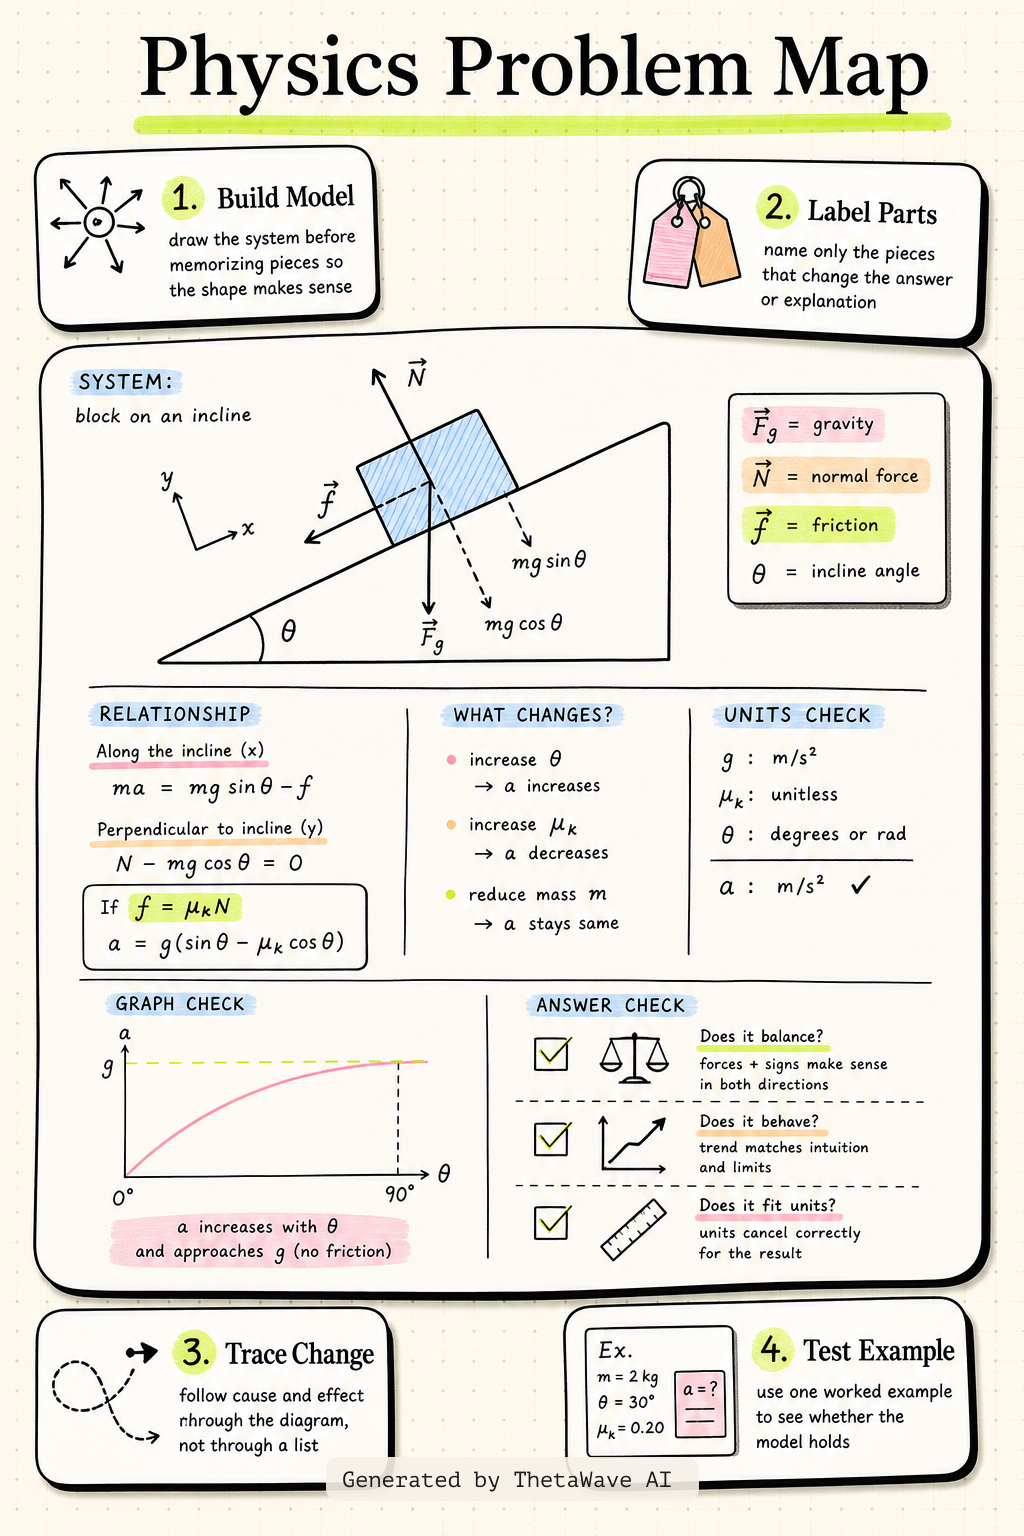 Physics Problem Map
1. Build Model
draw the system before
memorizing pieces so
the shape makes sense
2. Label Parts
name only the pieces
that change the answer
or explanation
SYSTEM:
block on an incline
y
x
N⃗
f⃗
mg sin θ
mg cos θ
F⃗g
θ
F⃗g = gravity
N⃗ = normal force
f⃗ = friction
θ = incline angle
RELATIONSHIP
Along the incline (x)
ma = mg sin θ − f
Perpendicular to incline (y)
N − mg cos θ = 0
If f = μₖN
a = g(sin θ − μₖ cos θ)
WHAT CHANGES?
increase θ
→ a increases
increase μₖ
→ a decreases
reduce mass m
→ a stays same
UNITS CHECK
g : m/s²
μₖ: unitless
θ : degrees or rad
a : m/s² ✓
GRAPH CHECK
a
g
θ
0°
90°
a increases with θ
and approaches g (no friction)
ANSWER CHECK
Does it balance?
forces + signs make sense
in both directions
Does it behave?
trend matches intuition
and limits
Does it fit units?
units cancel correctly
for the result
3. Trace Change
follow cause and effect
nhrough the diagram,
not through a list
Ex.
m = 2 kg
θ = 30°
μₖ = 0.20
a = ?
4. Test Example
use one worked example
to see whether the
model holds
Generated by ThetaWave AI